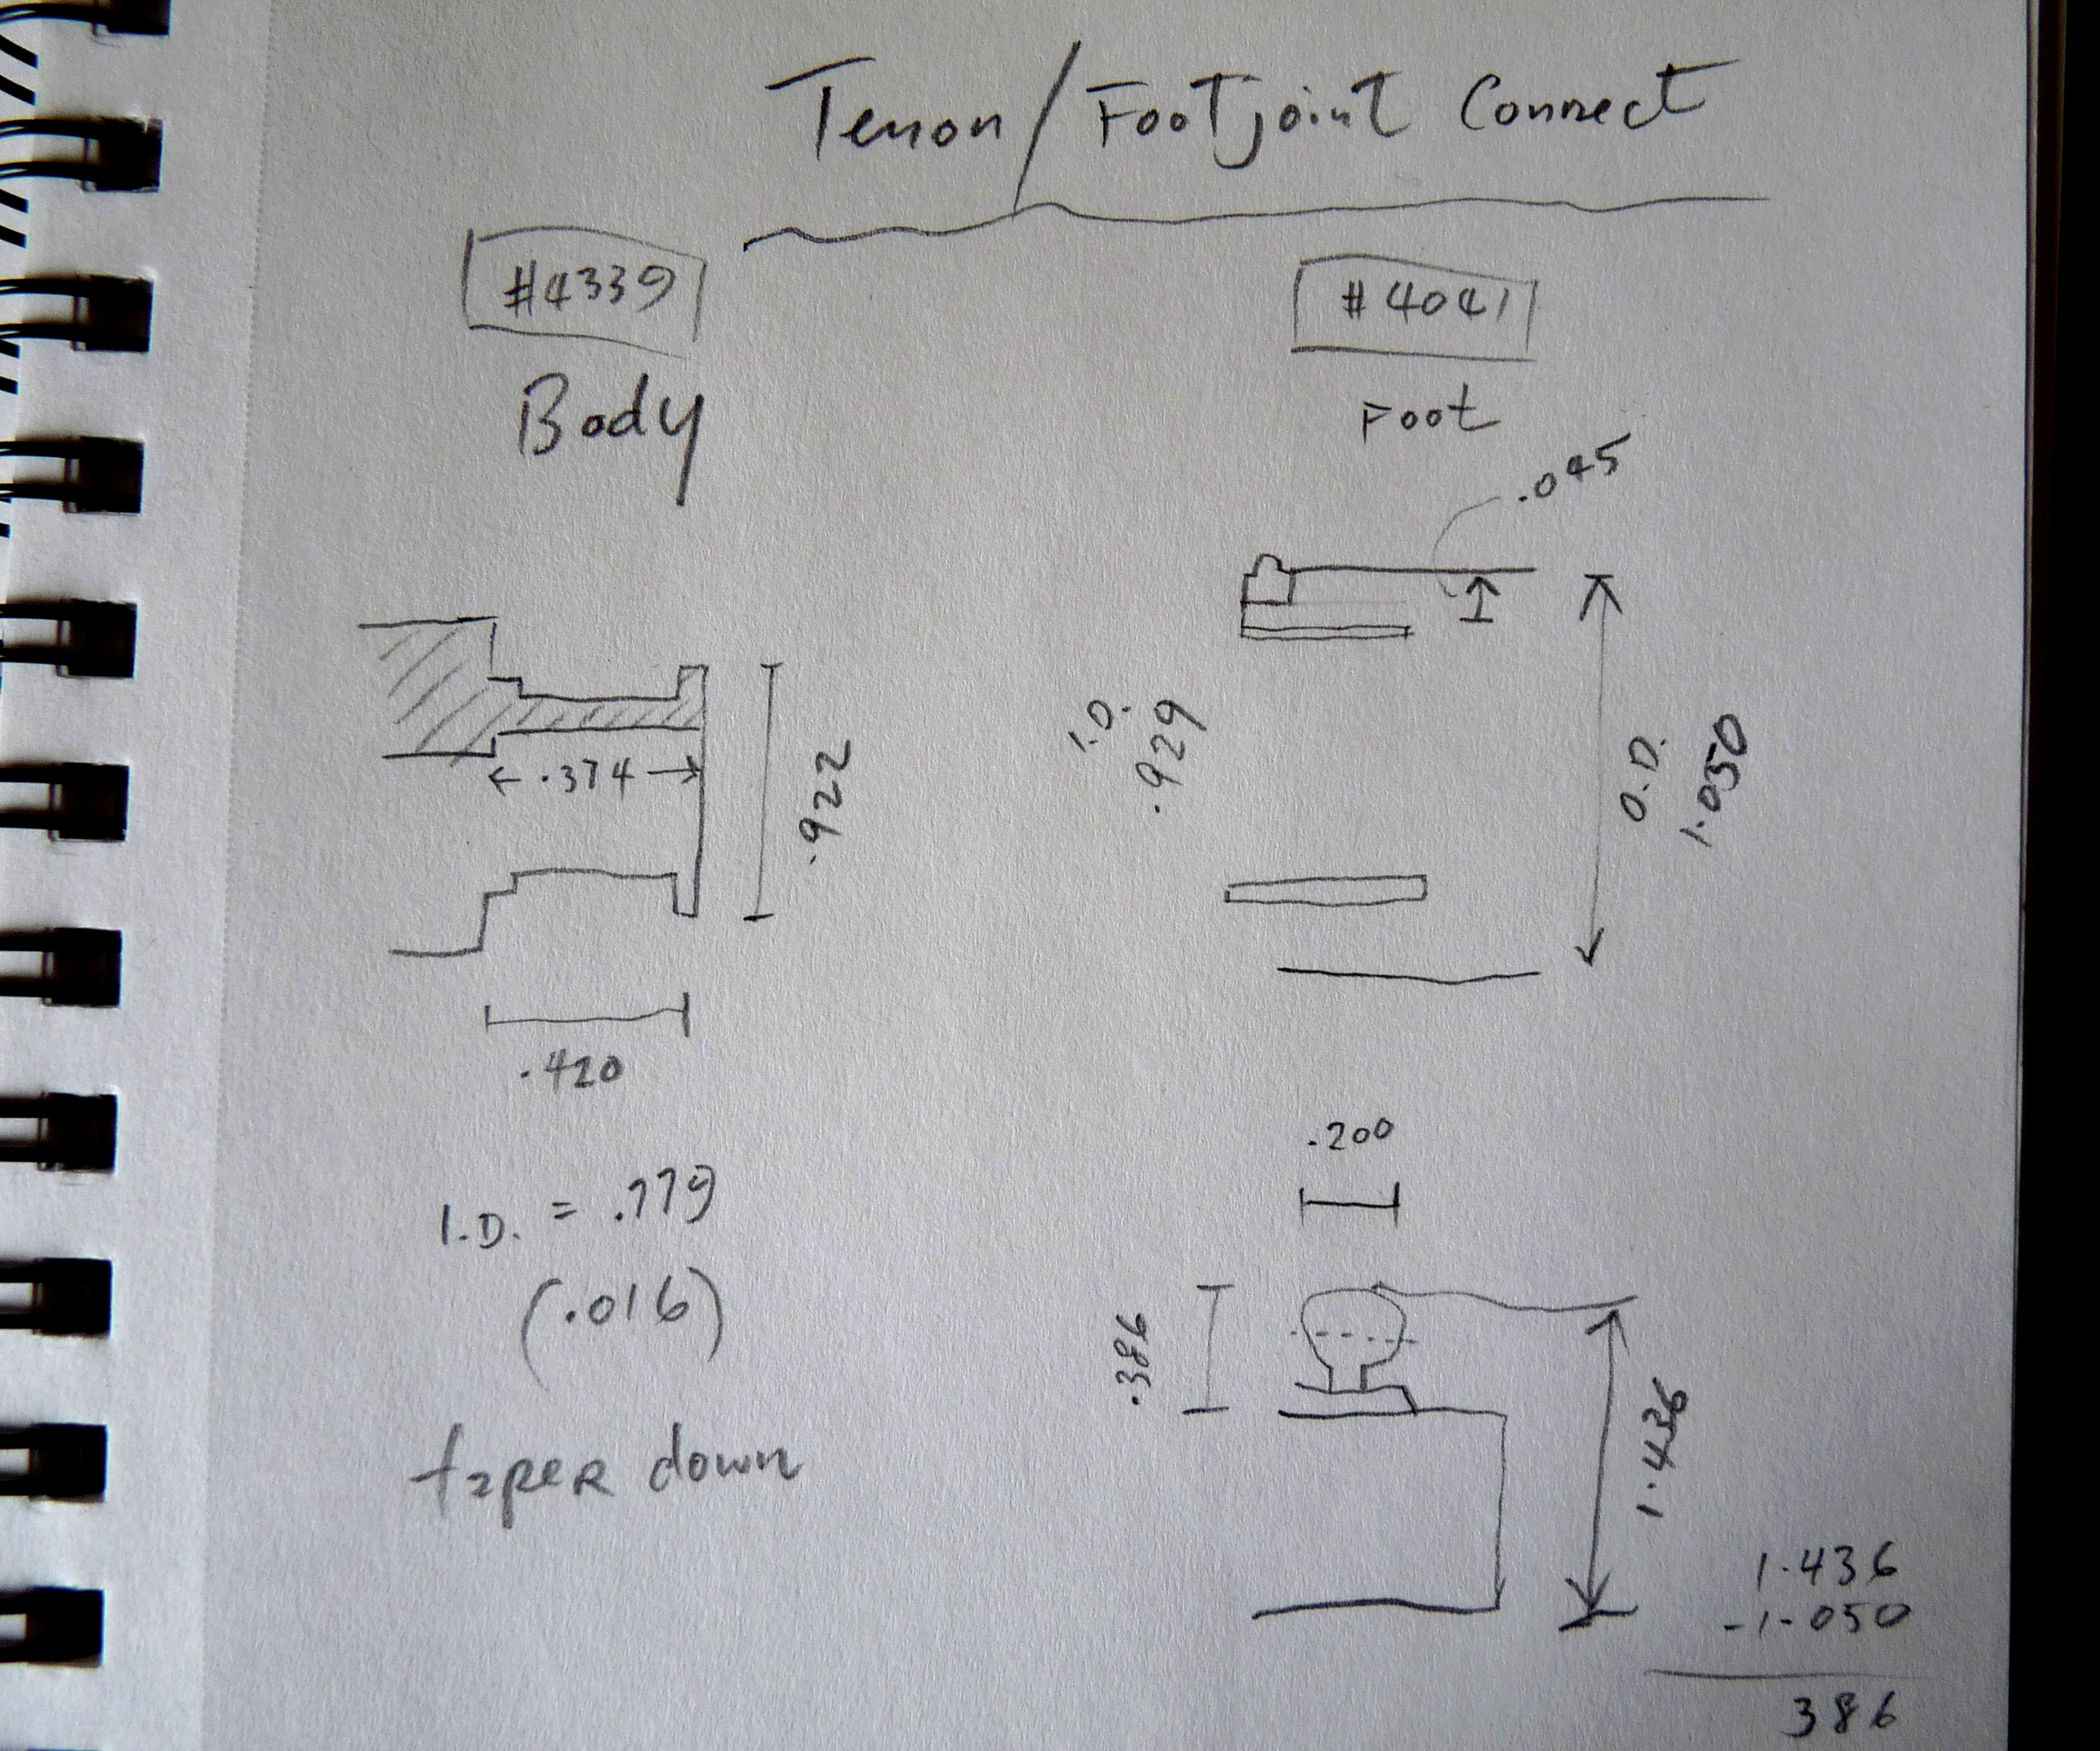 Tenon/Footjoint Connect
#4339
Body
.374
.922
.420
I.D. = .779
(.016)
taper down
#4041
Foot
.045
I.D.
.929
O.D.
1.050
.200
.386
1.436
1.436
-1.050
386